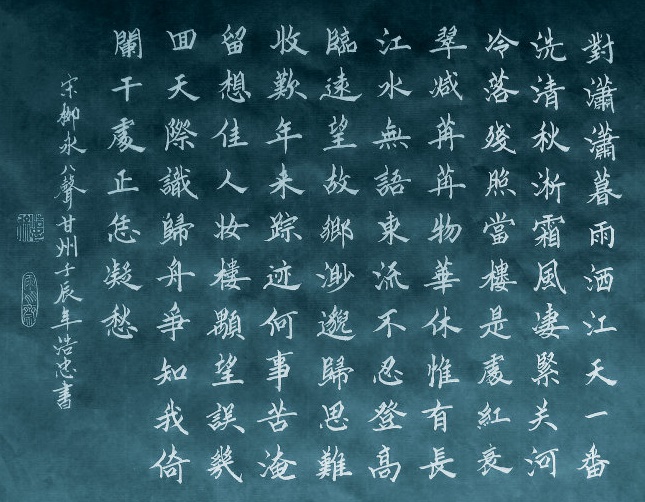 對瀟瀟暮雨洒江天一番
洗清秋淅霜風凄緊关河
冷落殘照當樓是處紅衰
翠减苒苒物華休惟有長
江水無語東流不忍登高
臨遠望故鄉渺邈歸思難
收歎年来踪迹何事苦淹
留想佳人妆樓顒望誤幾
回天際識歸舟爭知我倚
闌干處正恁凝愁
宋柳永八聲甘州壬辰年浩忠書